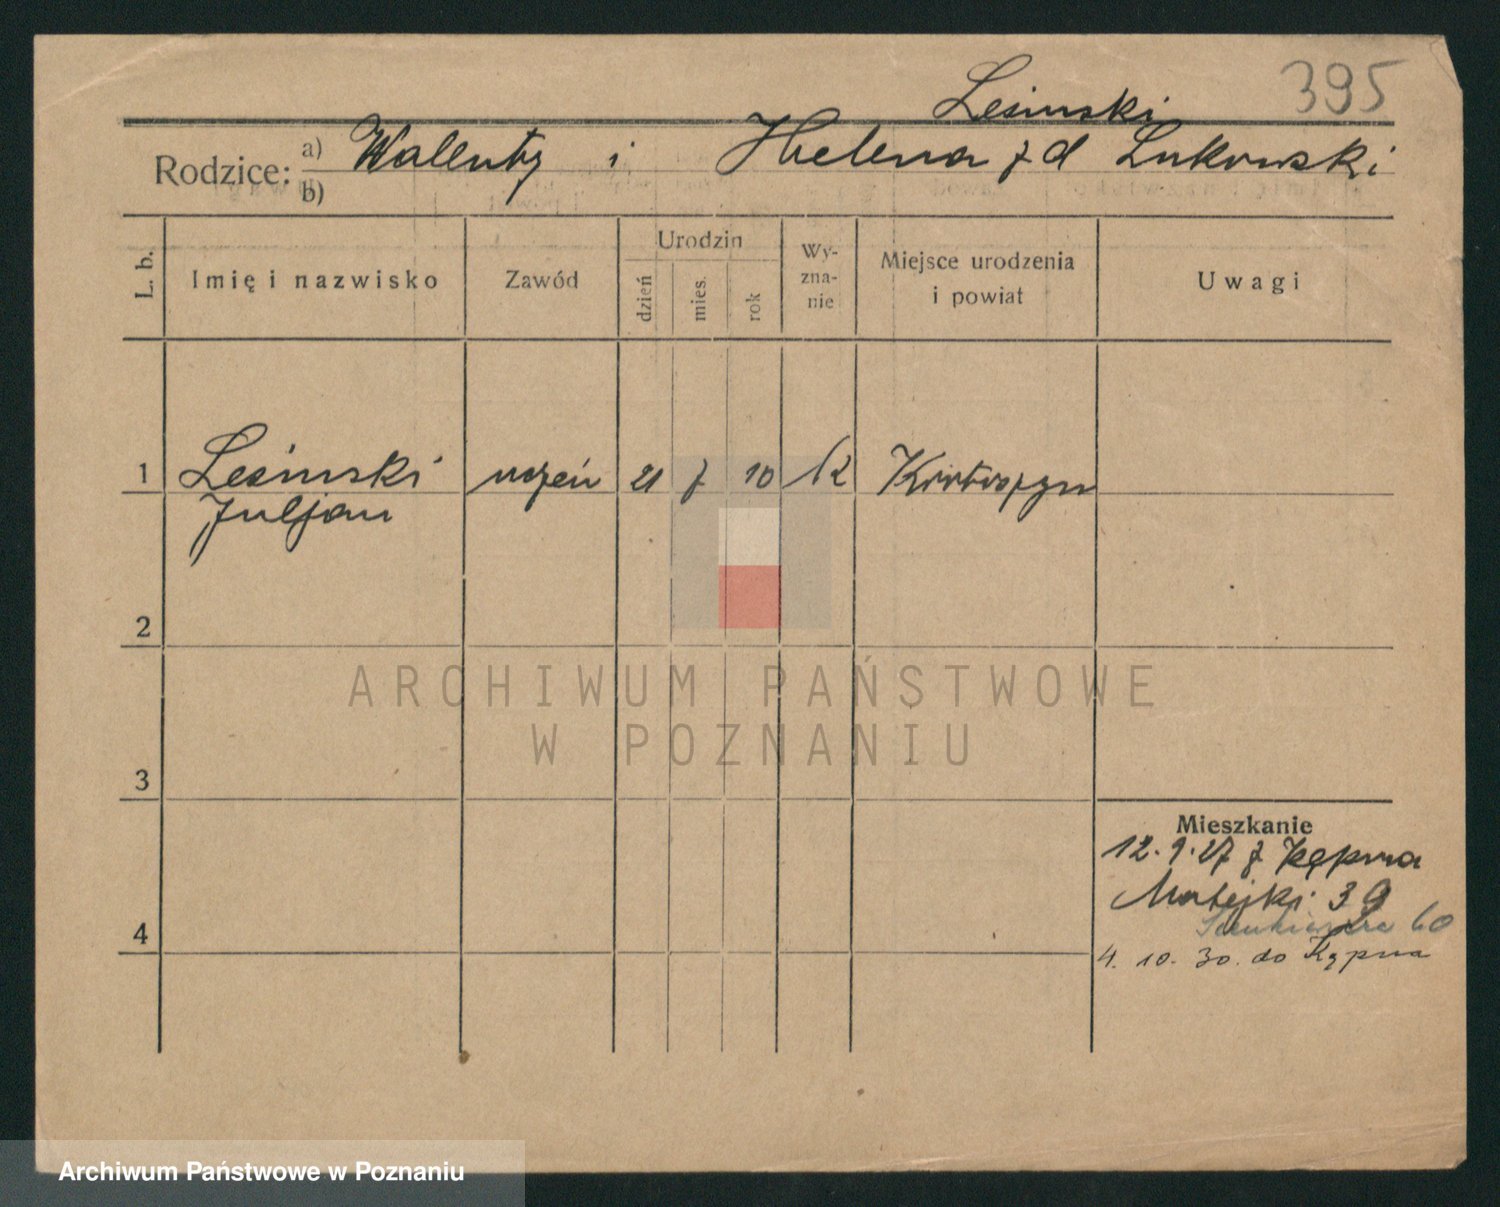 395
Lesinski
Rodzice: a) Walenty i Helena z d Lukowski
b)
L. b.
Imię i nazwisko
Zawód
Urodzin
dzień
mies.
rok
Wy-
zna-
nie
Miejsce urodzenia
i powiat
Uwagi
1 Lesinski uczeń 21 7 10 K Krotoszyn
Juljan
2
ARCHIWUM PAŃSTWOWE
W POZNANIU
3
Mieszkanie
12. 9. 27 z Kępna
Matejki 39
60
4
4. 10. 30. do Kępna
Archiwum Państwowe w Poznaniu